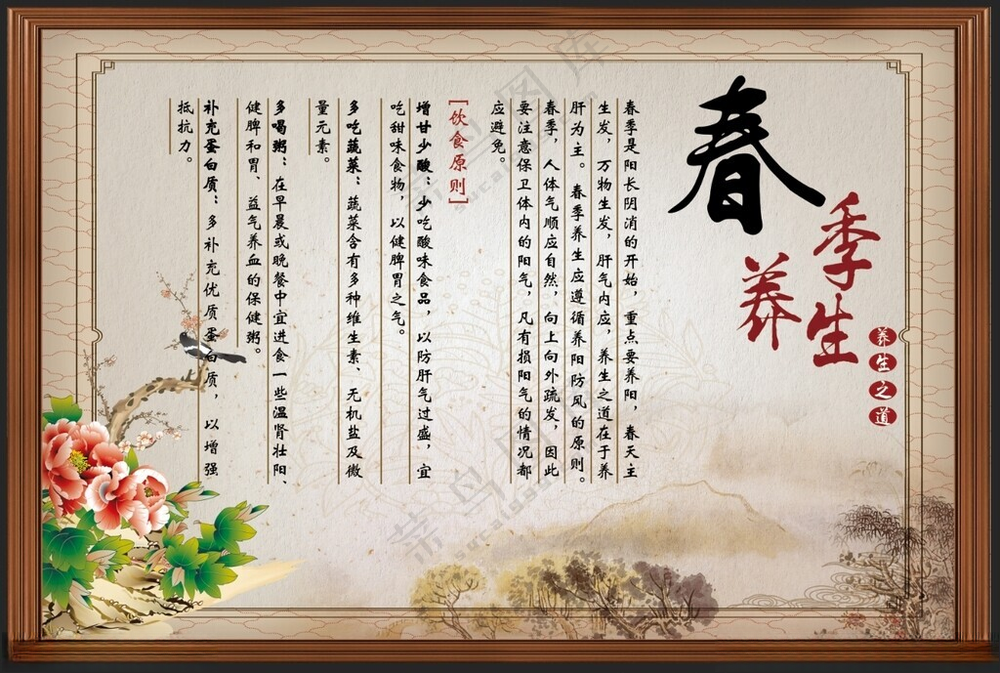 春季养生
养生之道
春季是阳长阴消的开始，重点要养阳，春天主
生发，万物生发，肝气内应，养生之道在于养
肝为主。春季养生应遵循养阳防风的原则。
春季，人体气顺应自然，向上向外疏发，因此
要注意保卫体内的阳气，凡有损阳气的情况都
应避免。
[饮食原则]
增甘少酸：少吃酸味食品，以防肝气过盛，宜
吃甜味食物，以健脾胃之气。
多吃蔬菜：蔬菜含有多种维生素、无机盐及微
量元素。
多喝粥：在早晨或晚餐中宜进食一些温肾壮阳、
健脾和胃、益气养血的保健粥。
补充蛋白质：多补充优质蛋白质，以增强
抵抗力。
菜鸟图库